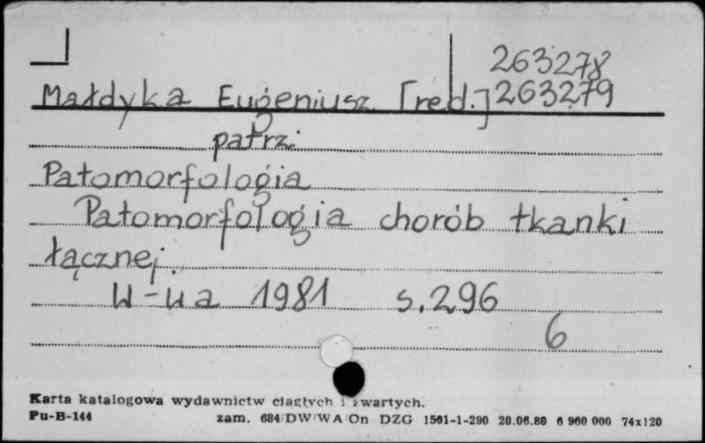 263278
Małdyka Eugeniusz [red.] 263279
patrz:
Patomorfologia
Patomorfologia chorób tkanki
łącznej.
W-wa 1981 s. 296
6
Karta katalogowa wydawnictw ciągłych i zwartych.
Pu-B-144 zam. 684/DW/WA/On DZG 1501-1-290 20.06.80 6 960 000 74x120